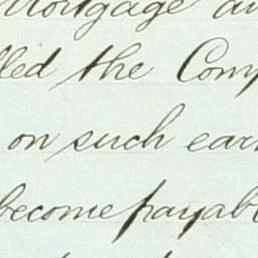 Mortgage an
lled the Comp
on such earn
become payabl